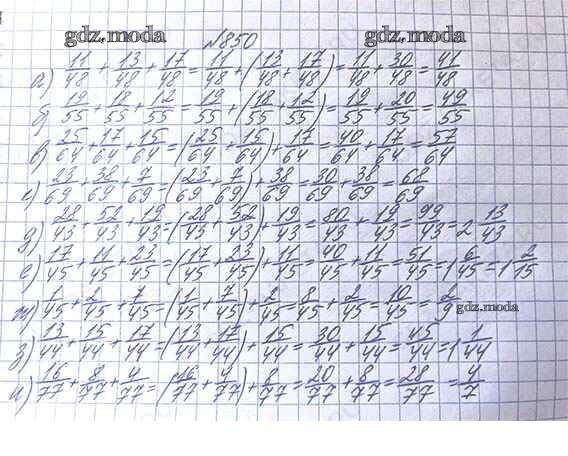 gdz.moda gdz.moda
№850
а) 11/48 + 13/48 + 17/48 = 11/48 + (13/48 + 17/48) = 11/48 + 30/48 = 41/48
б) 19/55 + 18/55 + 12/55 = 19/55 + (18/55 + 12/55) = 19/55 + 20/55 = 49/55
в) 25/64 + 17/64 + 15/64 = (25/64 + 15/64) + 17/64 = 40/64 + 17/64 = 57/64
г) 23/69 + 38/69 + 7/69 = (23/69 + 7/69) + 38/69 = 30/69 + 38/69 = 68/69
д) 28/43 + 52/43 + 19/43 = (28/43 + 52/43) + 19/43 = 80/43 + 19/43 = 99/43 = 2 13/43
е) 17/45 + 11/45 + 23/45 = (17/45 + 23/45) + 11/45 = 40/45 + 11/45 = 51/45 = 1 6/45 = 1 2/15
ж) 1/45 + 2/45 + 7/45 = (1/45 + 7/45) + 2/45 = 8/45 + 2/45 = 10/45 = 2/9 gdz.moda
з) 13/44 + 15/44 + 17/44 = (13/44 + 17/44) + 15/44 = 30/44 + 15/44 = 45/44 = 1 1/44
и) 16/77 + 8/77 + 4/77 = (16/77 + 4/77) + 8/77 = 20/77 + 8/77 = 28/77 = 4/7